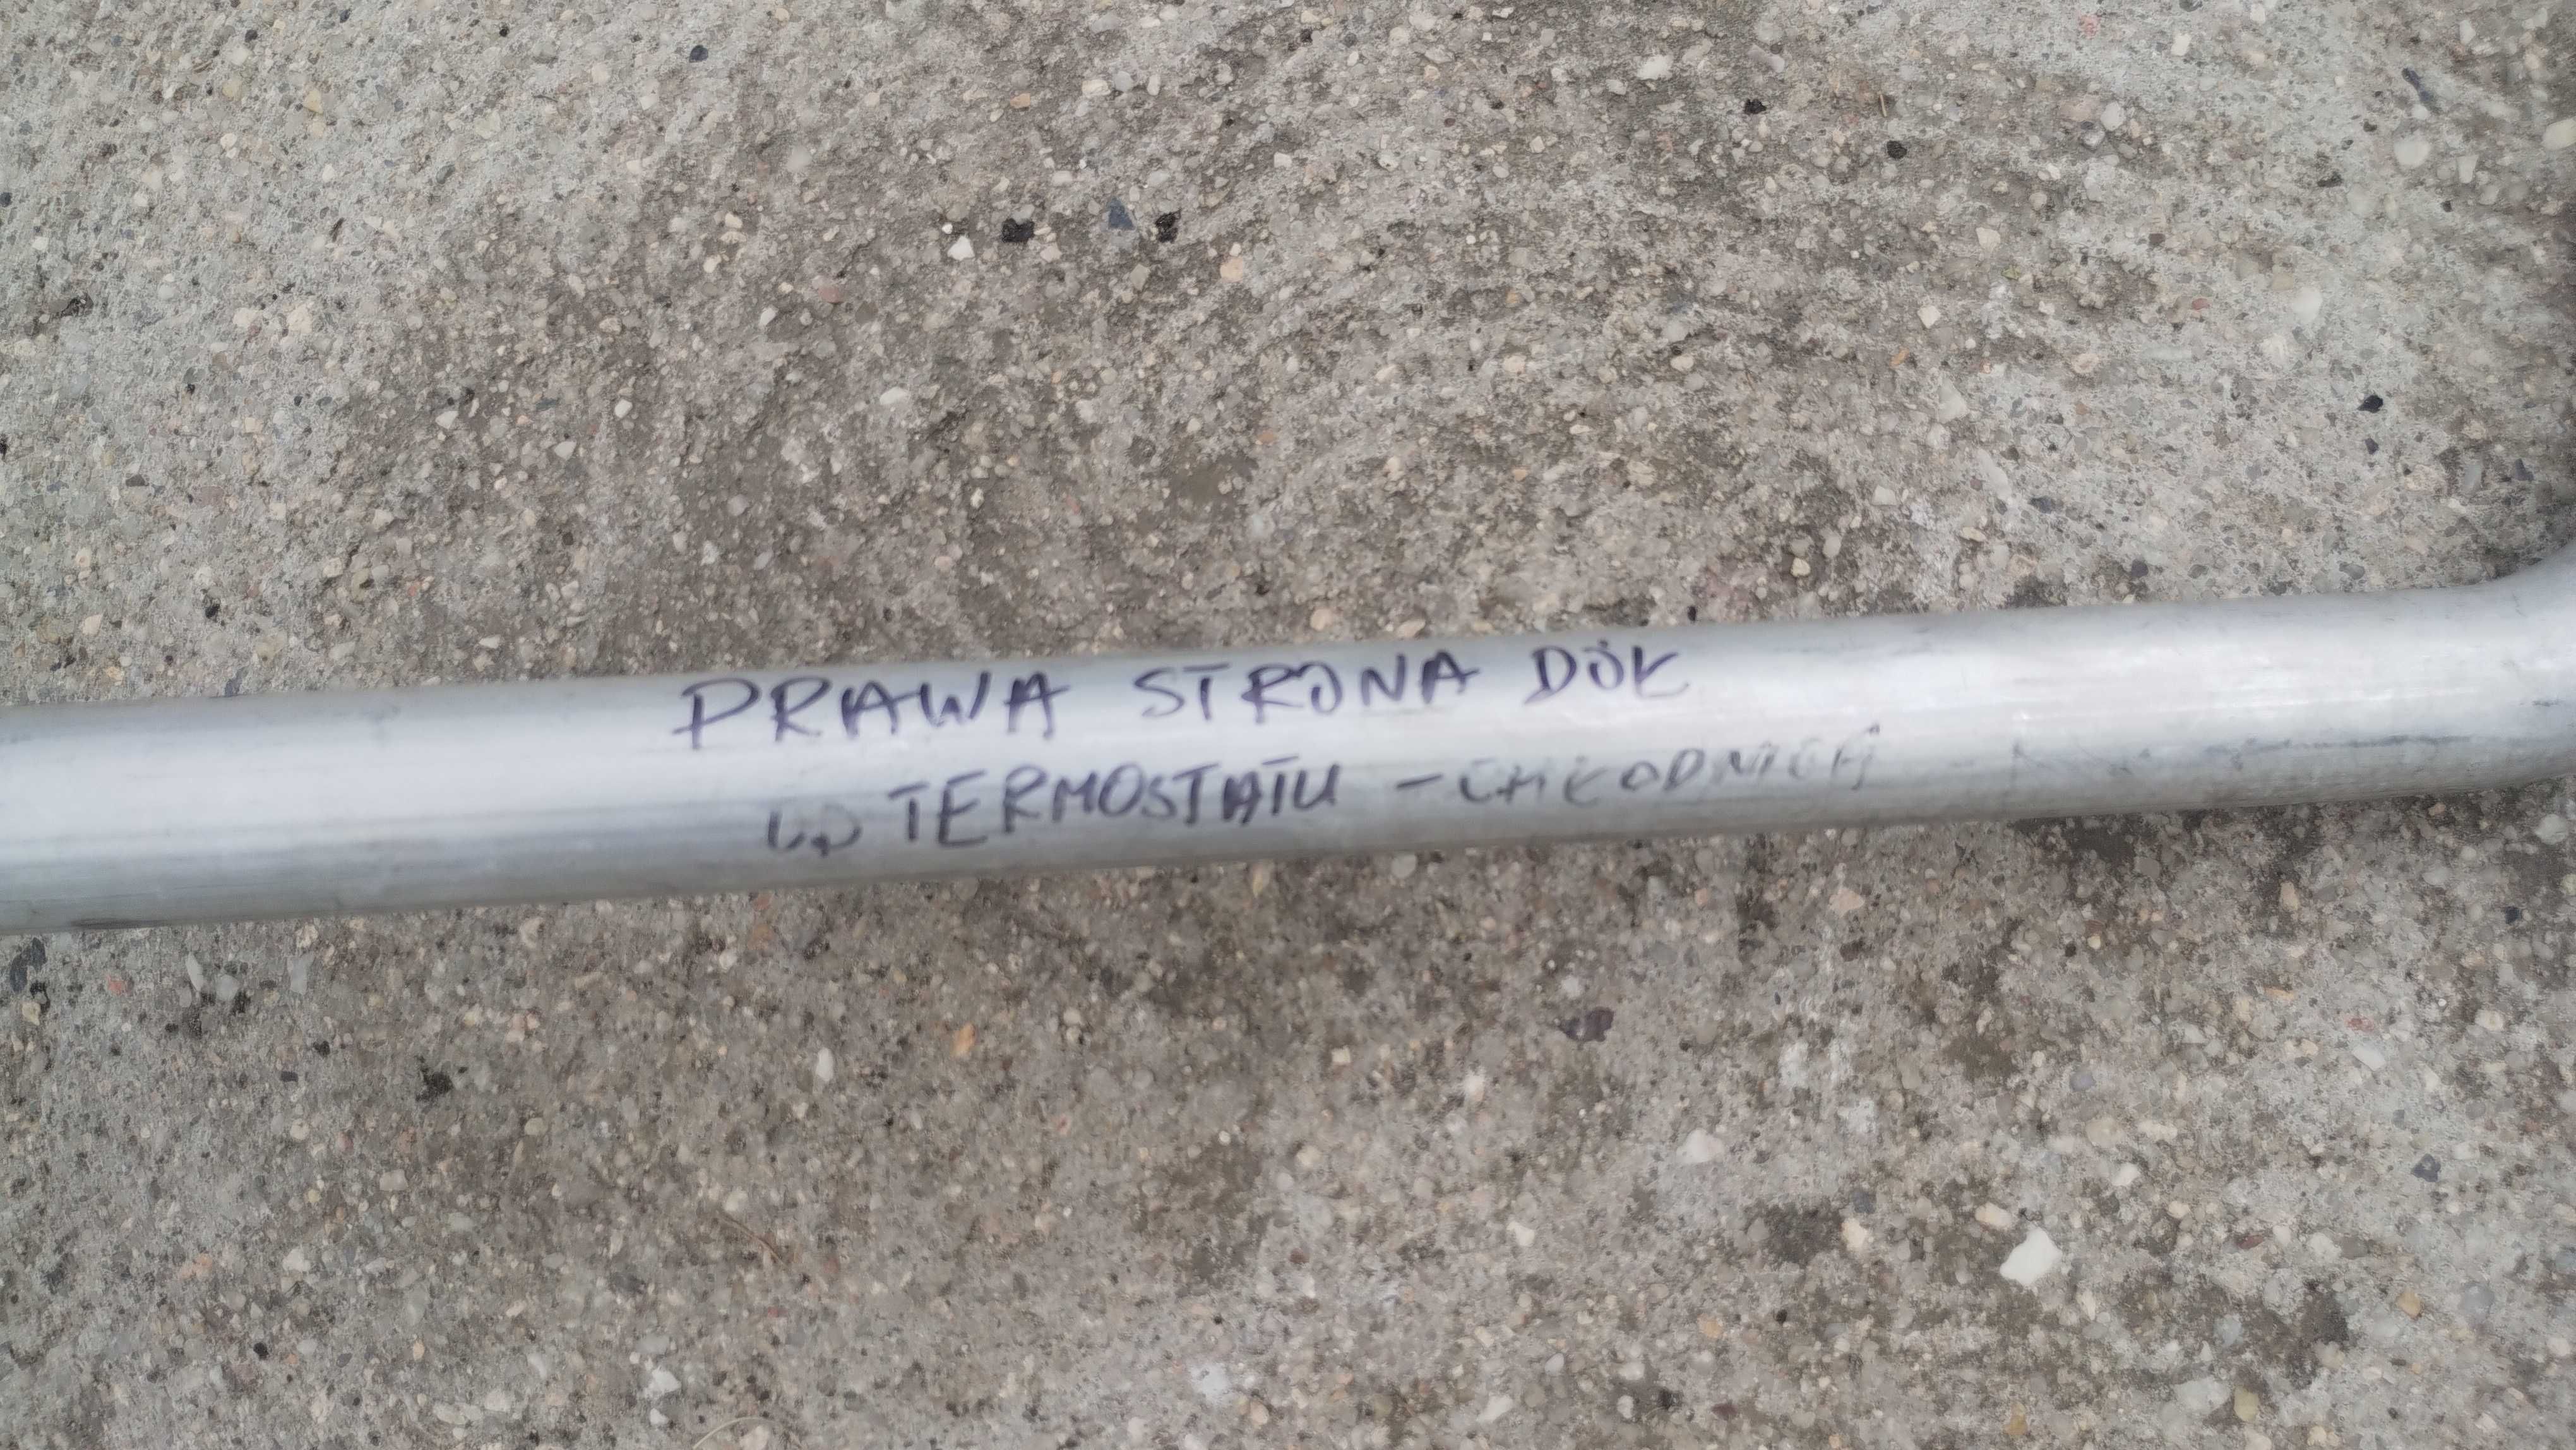 PRAWA STRONA DÓŁ
TERMOSTATU - CHŁODNICA